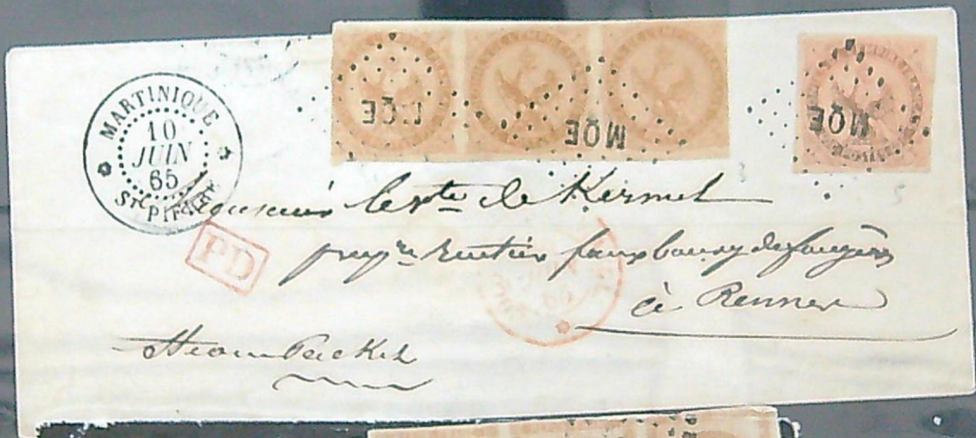 MARTINIQUE
10
JUIN
65
ST PIERRE
MQE
MQE
MQE
PD
Monsieur le Cte de Kermel
propre rentier faux bourg de fougères
à Rennes
Steam Packet